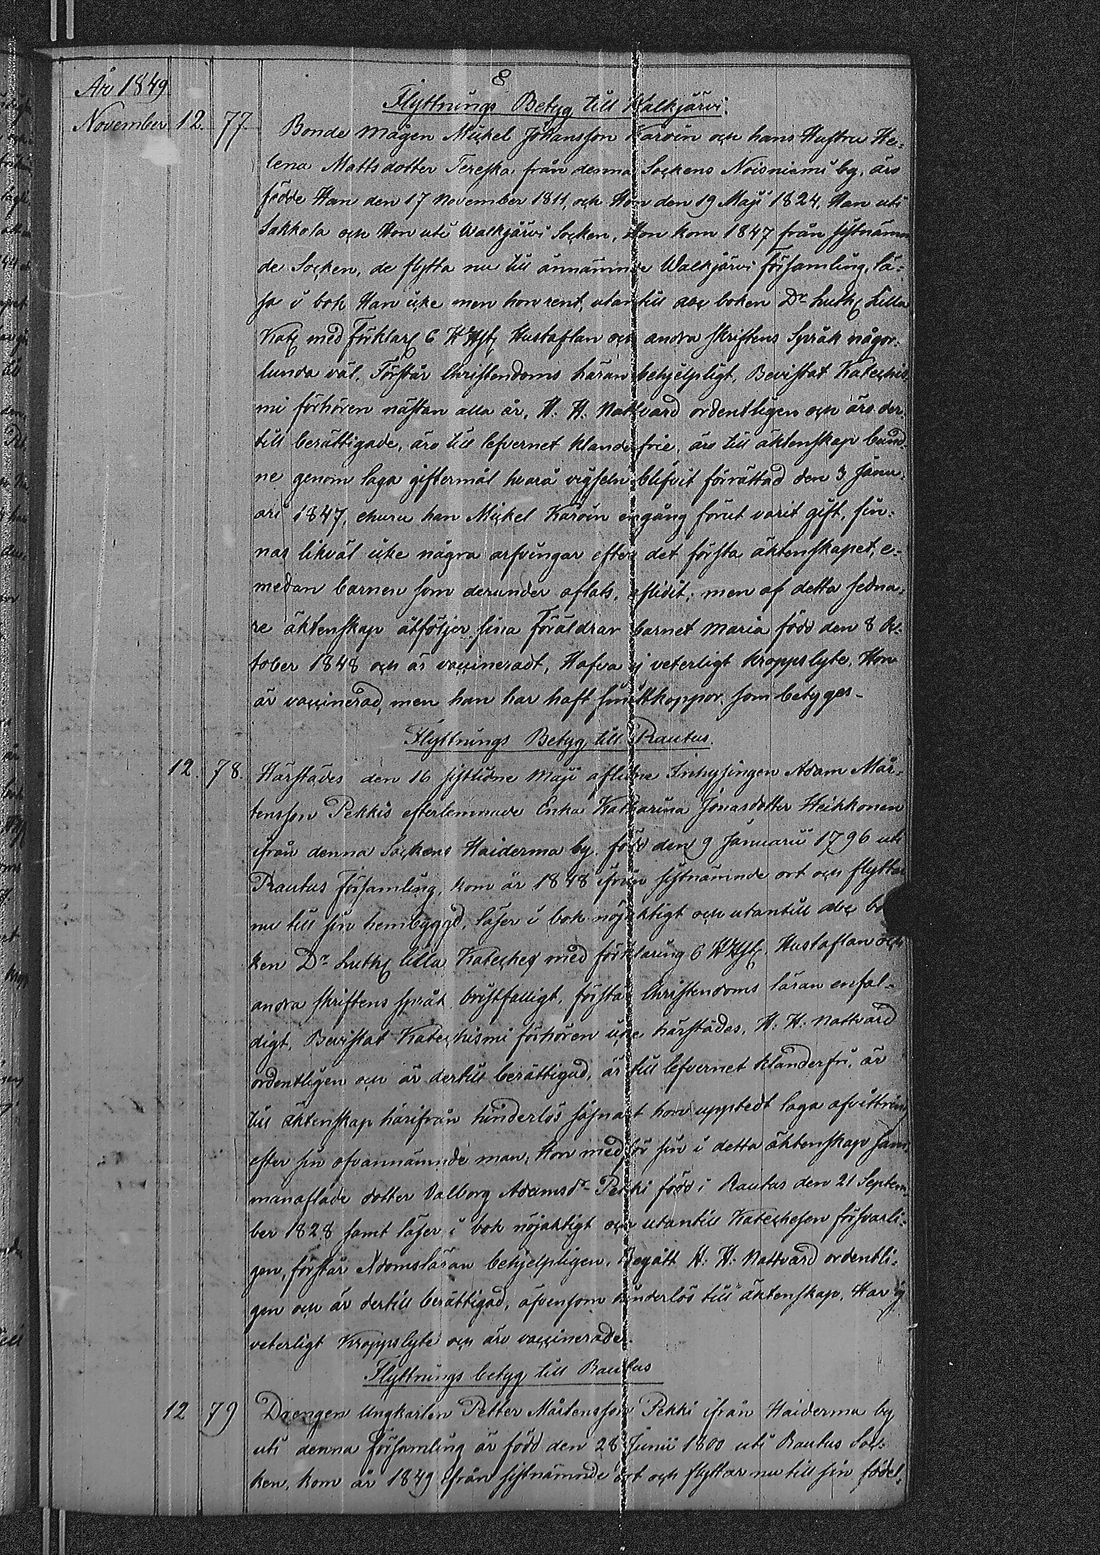 8
År 1849.
Flyttnings Betyg till Walkjärvi.
November 12. 77. Bonde mågen Mickel Johansson Karvin och hans Hustru He-
lena Mattsdotter Tereska från denna Sockens Noisniemi by, äro
födde Han den 17 November 1811, och Hon den 19 Maji 1824, Han uti
Sakkola och Hon uti Walkjärvi Socken, Hon kom 1847 från sistnämn
de Socken, de flytta nu till ännämnde Walkjärvi Församling, lä-
sa i bok Han icke men hon rent, utantill abc boken Dr Luth. Lilla
Kat. med förklar. 6 Hustaflan och andra skriftens språk någor-
lunda väl. Förstår Christendoms läran behjelpligt, Bevistat Kateches
mi förhören nästan alla år, H. H. Nattvard ordentligen och äro der
till berättigade, äro till lefvernet klanderfrie, äro till äktenskap bund-
ne genom laga giftermål hvarå vigseln blifvit förrättad den 3 Janu-
ari 1847, ehuru han Mickel Karvin engång förut varit gift, fin-
nas likväl icke några arfvingar efter det första äktenskapet, e-
medan barnen som derunder aflats, aflidit; men af detta sedna-
re äktenskap åtföljer sina Föräldrar barnet Maria född den 8 Ok-
tober 1848 och är vaccineradt, Hafva ej veterligt kroppslyte, Hon
är vaccinerad, men han har haft smittkoppor. som betygas.
Flyttnings Betyg till Rautus
12. 78. Härstädes den 16 sistlidne Maji aflidne Inhysingen Adam Mår-
tensson Pekkis efterlemnade Enka Katharina Jonasdotter Heikkonen
ifrån denna Sockens Haiderma by, född den 9 Januarii 1796 uti
Rautus Församling, kom år 1848 ifrån sistnämnde ort och flyttar
nu till sin hembygd, läser i bok nöjaktigt och utantill abc bo
ken Dr Luth. Lilla Kateches med förklaring 6 Hustaflan och
andra skriftens språk bristfälligt, förstår Christendoms läran enfal-
digt, Bevistat Katechismi förhören icke härstädes, H. H. Nattvard
ordentligen och är dertill berättigad, är till lefvernet klanderfri, är
till äktenskap härifrån hinderlös såsnart hon uppstedt laga afvittring
efter sin ofvannämnde man, Hon medför sin i detta äktenskap sam
manaflade dotter Valborg Adamsdr Pekki född i Rautus den 21 Septem
ber 1828 samt läser i bok nöjaktigt och utantill Katechesen försvarli-
gen, förstår Ndomsläran behjelpligen, Begått H. H. Nattvard ordentli-
gen och är dertill berättigad, äfvensom hinderlös till äktenskap, Har ej
veterligt Kroppslyte och äro vaccinerade.
Flyttnings betyg till Rautus
12 79 Drengen Ungkarlen Petter Mårtensson Pekki ifrån Haiderma by
uti denna Församling är född den 28 Junii 1800 uti Rautus Soc-
ken, kom år 1849 ifrån sistnämnde ort och flyttar nu till sin födel-